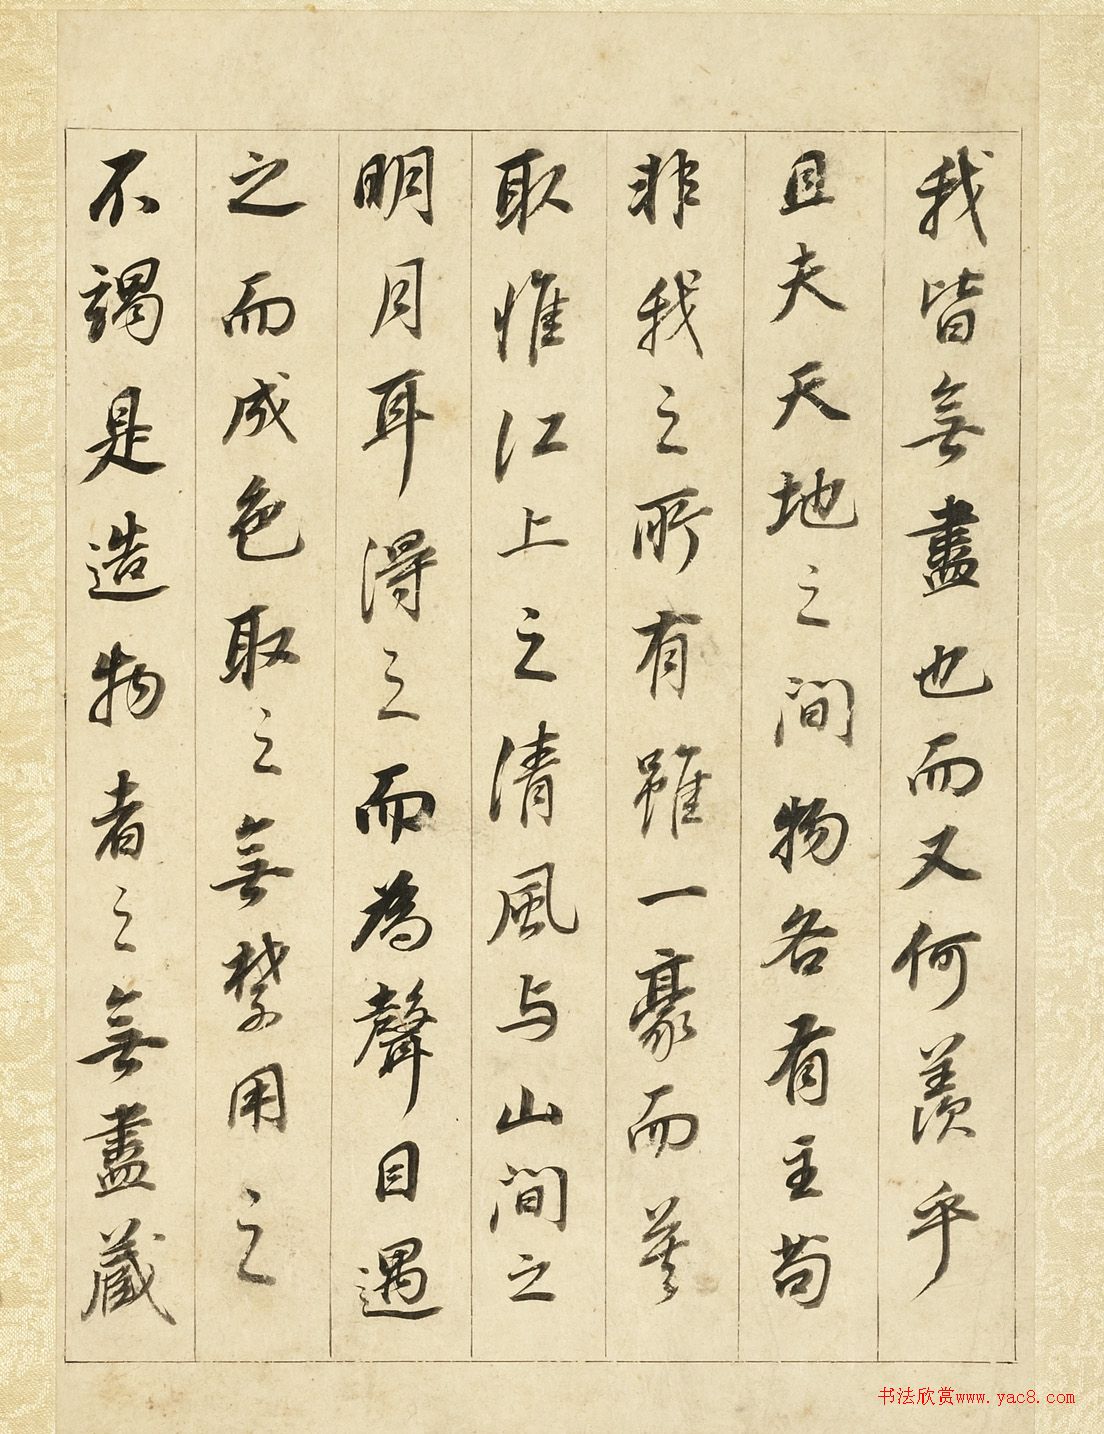 我皆無盡也而又何羨乎
且夫天地之間物各有主苟
非我之所有雖一豪而莫
取惟江上之清風与山間之
明月耳得之而為聲目遇
之而成色取之無禁用之
不竭是造物者之無盡藏
书法欣赏www.yac8.com